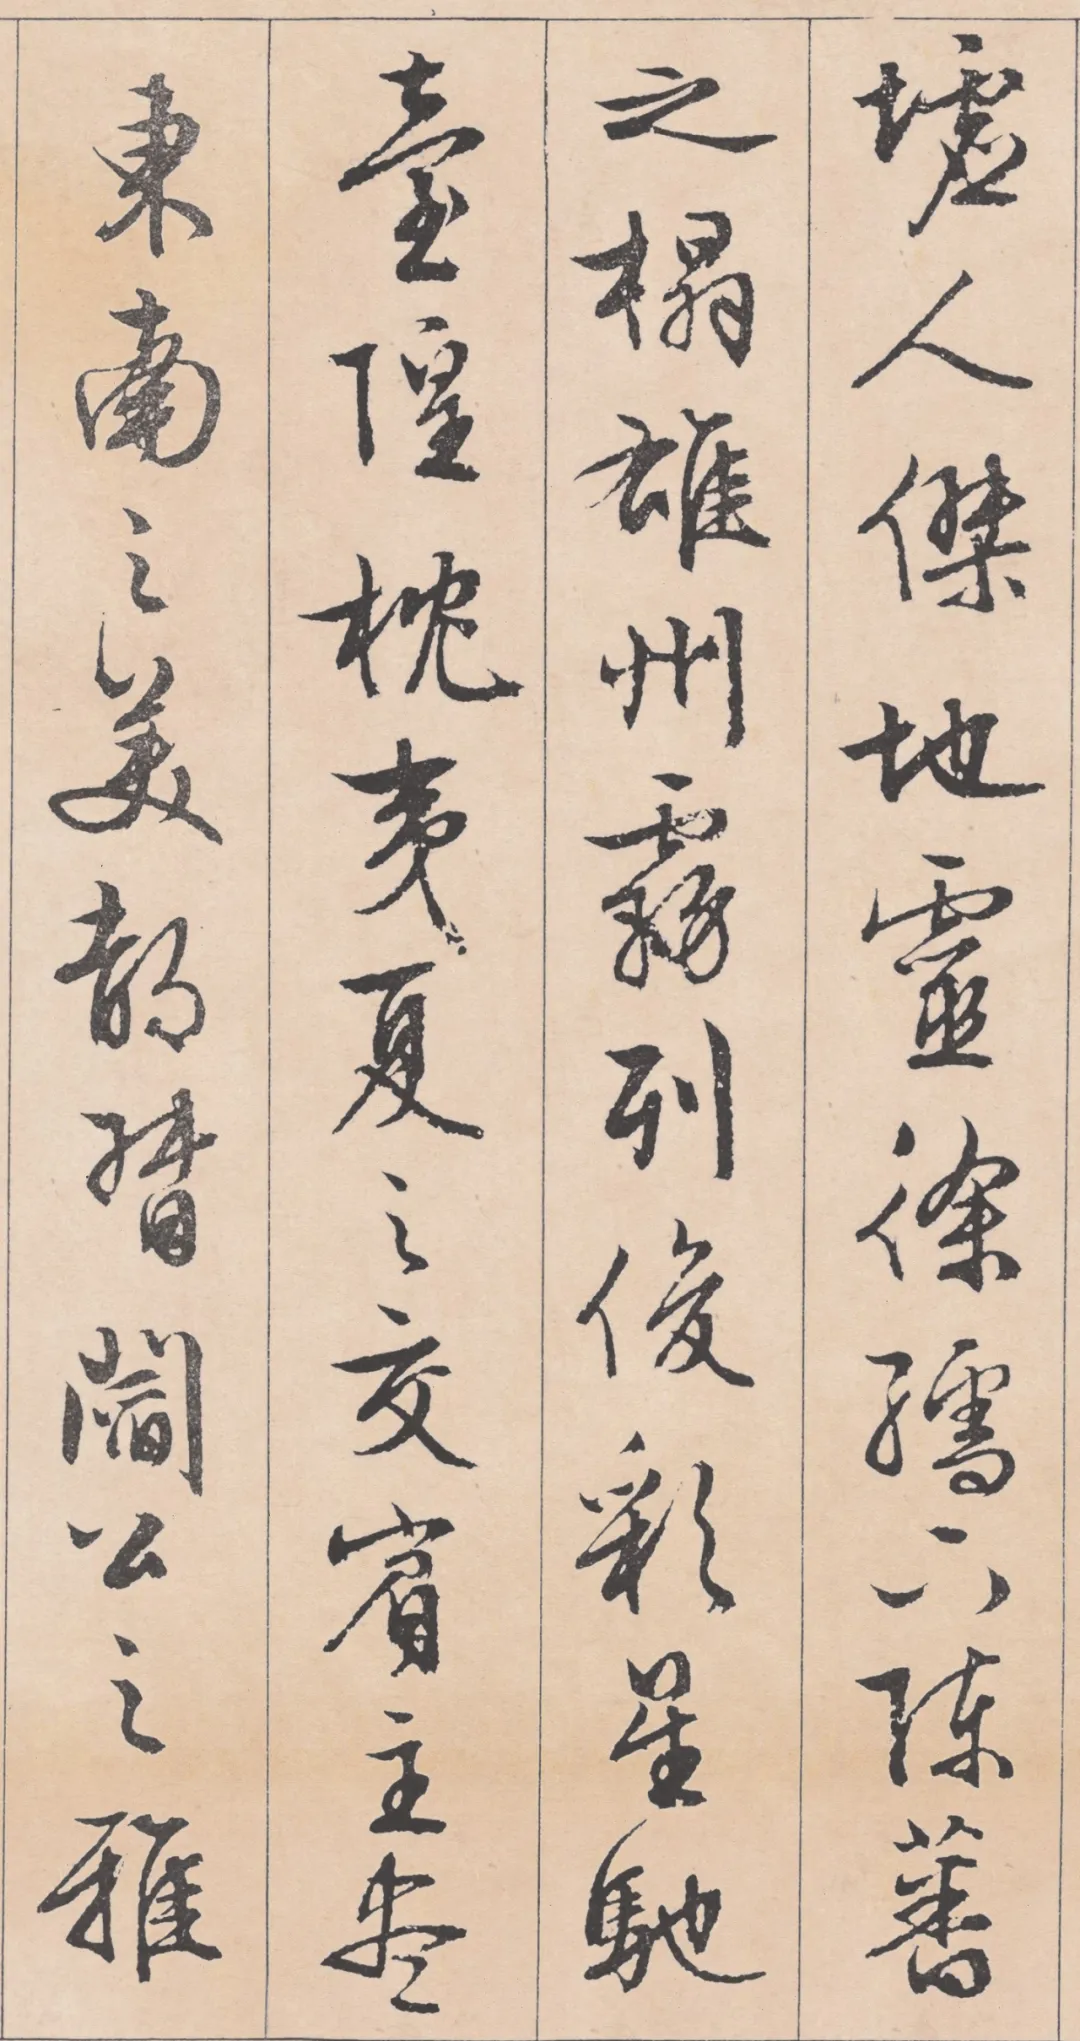 墟人傑地靈徐孺下陳蕃
之榻雄州霧列俊彩星馳
臺隍枕夷夏之交賓主盡
東南之美都督閻公之雅